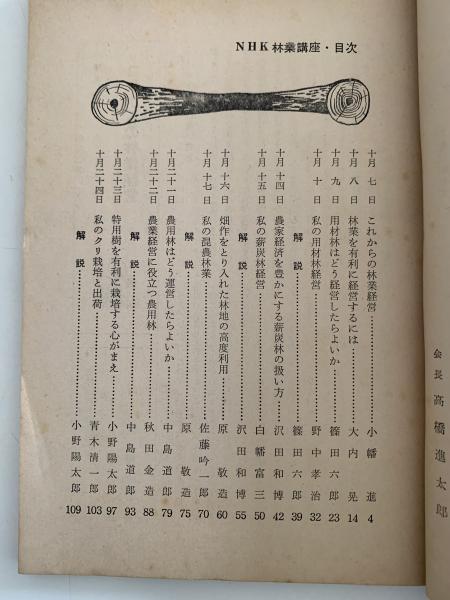 会長 高橋進太郎
NHK 林業講座・目次
十月 七 日 これからの林業経営 小幡 進 4
十月 八 日 林業を有利に経営するには 大内 晃 14
十月 九 日 用材林はどう経営したらよいか 篠田六郎 23
十月 十 日 私の用材林経営 野中孝治 32
解説 篠田六郎 39
十月 十四日 農家経済を豊かにする薪炭林の扱い方 沢田和博 42
十月 十五日 私の薪炭林経営 白幡富三 50
解説 沢田和博 55
十月 十六日 畑作をとり入れた林地の高度利用 原 敬造 60
十月 十七日 私の混農林業 佐藤吟一郎 70
解説 原 敬造 75
十月二十一日 農用林はどう運営したらよいか 中島道郎 79
十月二十二日 農業経営に役立つ農用林 秋田金造 88
解説 中島道郎 93
十月二十三日 特用樹を有利に栽培する心がまえ 小野陽太郎 97
十月二十四日 私のクリ栽培と出荷 青木清一郎 103
解説 小野陽太郎 109